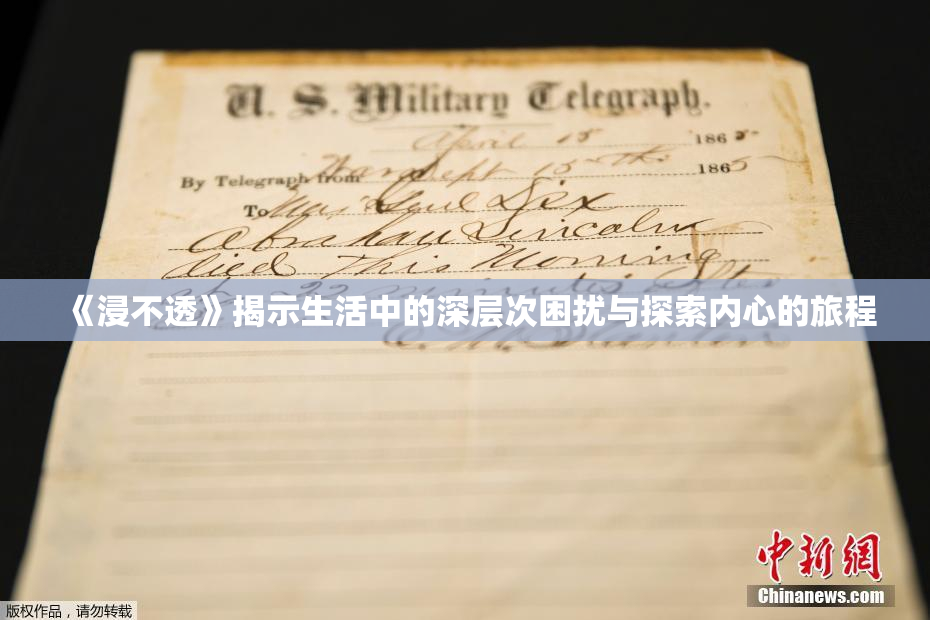 U. S. Military Telegraph.
April 15 1865
By Telegraph from War Dept 15th 1865
To Maj Genl Dix
Abraham Lincoln
died this Morning
22 minutes after
《浸不透》揭示生活中的深层次困扰与探索内心的旅程
E. M. Stanton
中新网
Chinanews.com
版权作品，请勿转载